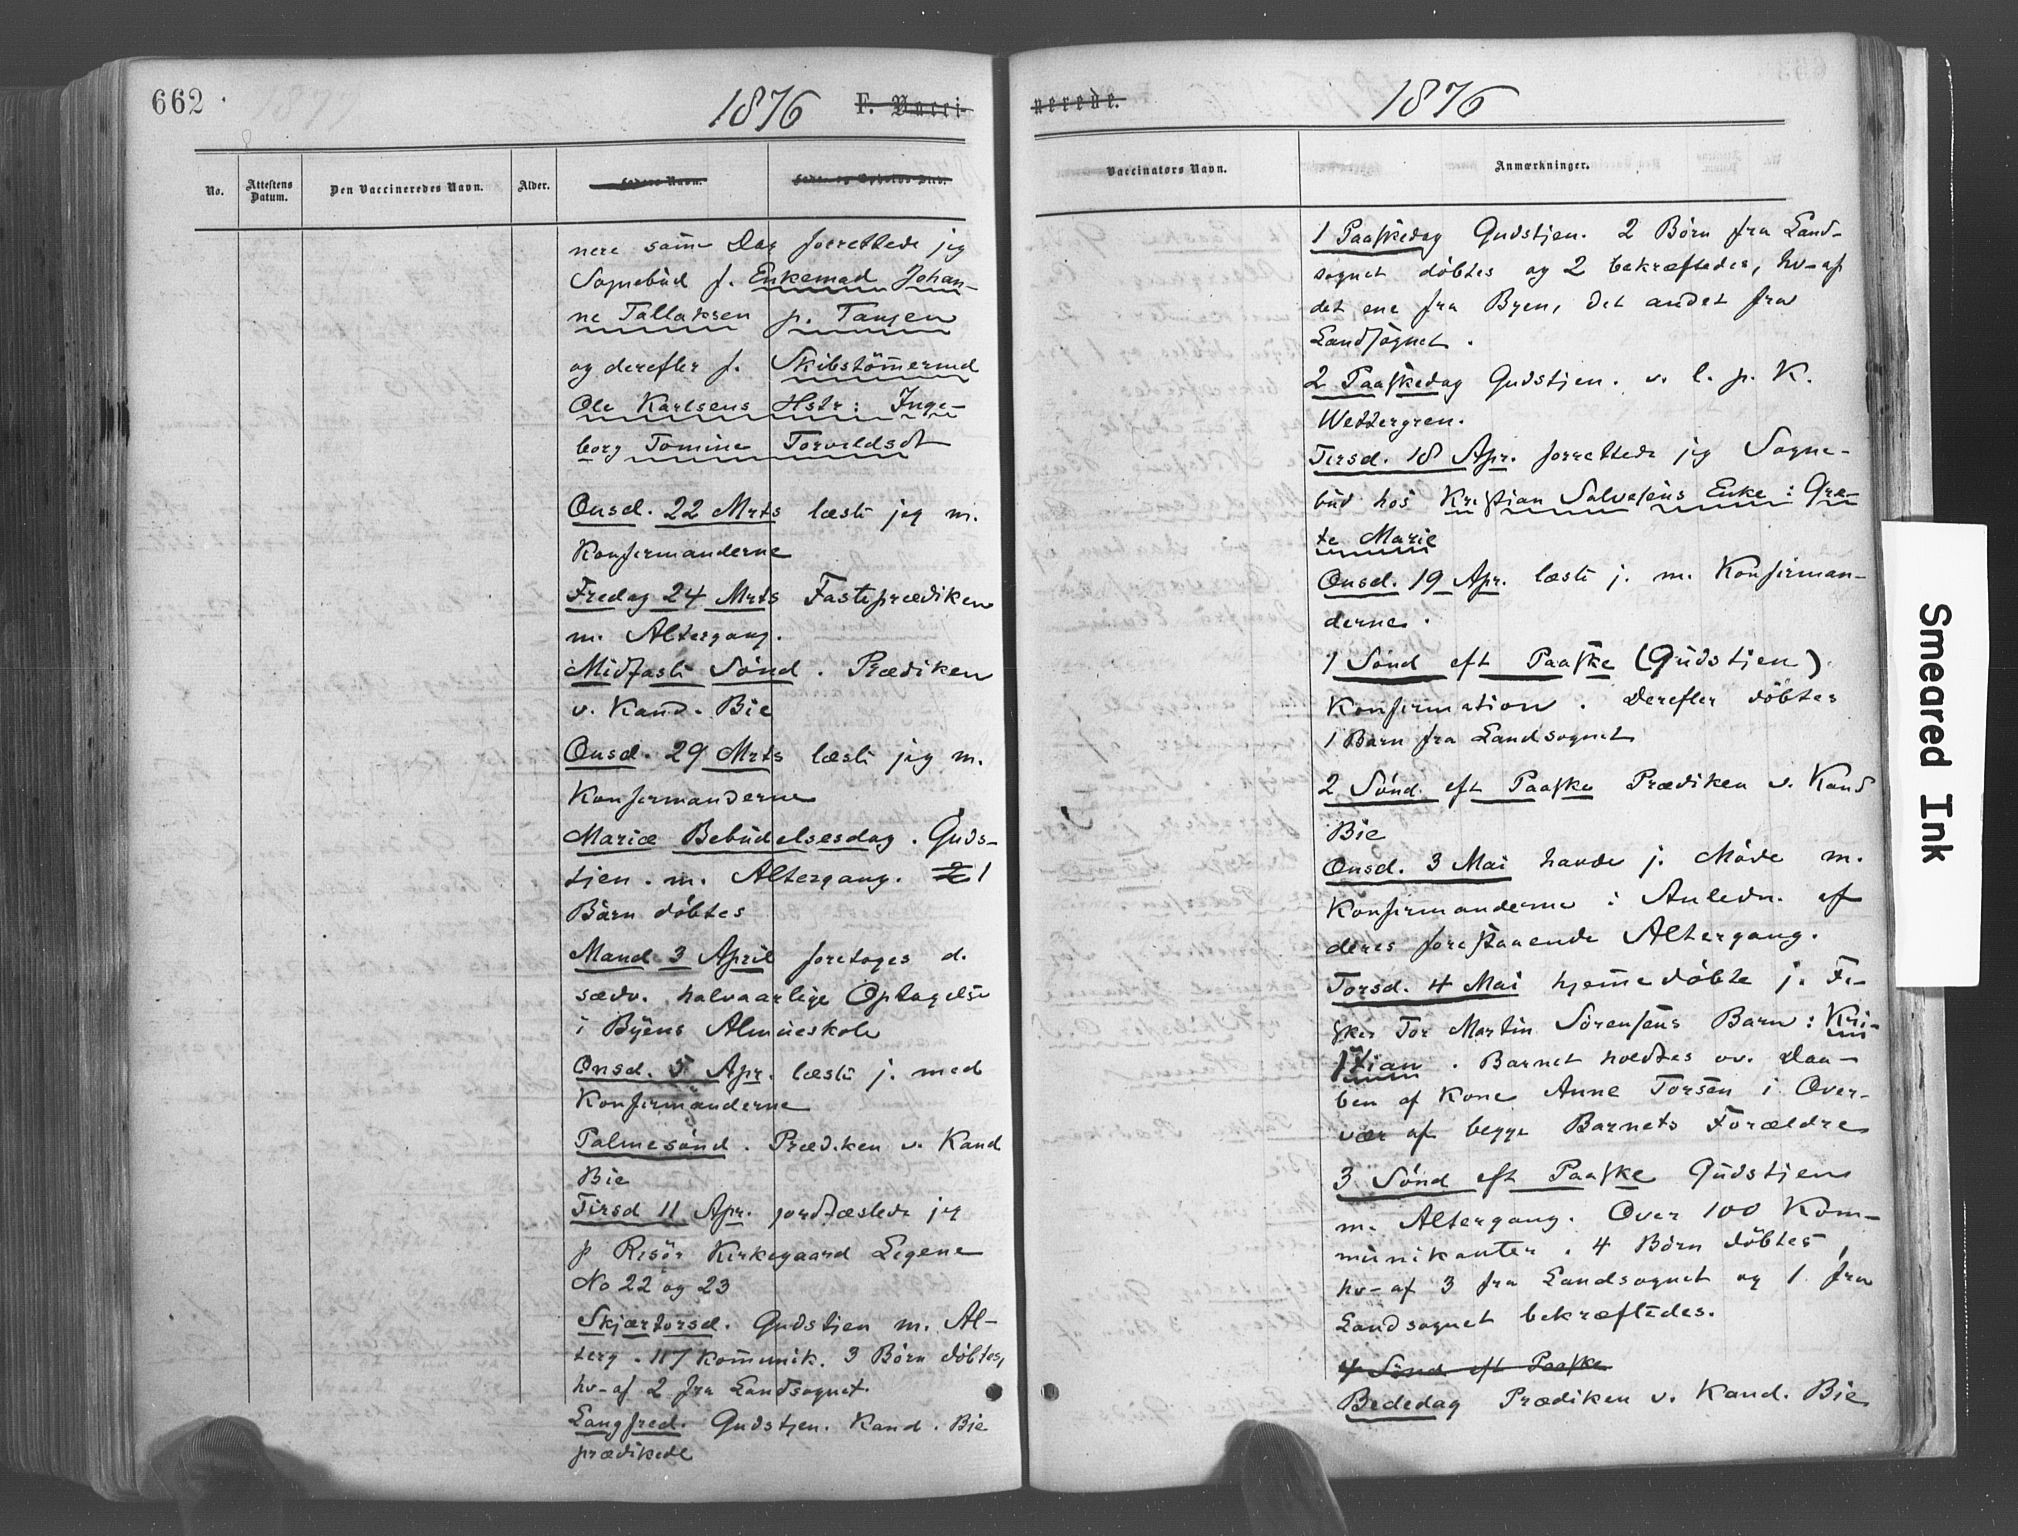 662
1876 F. Vacci-
No. Attestens Datum. Den Vaccineredes Navn. Alder. Faders Navn.
nere same Dag forrettede jeg
Sognebud f. Enkemad Johan-
ne Tallaksen p. Tangen
og derefter f. Skibstömermd
Ole Karlsens Hstr: Inge-
borg Tomine Torvaldsdt
Onsd. 22 Mrts læste jeg m.
Konfirmanderne
Fredag 24 Mrts Fasteprædiken
m. Altergang.
Midfaste Sønd. Prædiken
v. Kand. Bie
Onsd. 29 Mrts læste jeg m.
Konfirmanderne
Mariæ Bebudelsesdag. Guds-
tjen. m. Altergang. 2 1
Børn døbtes
Mand 3 April foretoges d.
sædv. halvaarlige Optagelse
i Byens Almueskole
Onsd. 5 Apr. læste j. med
Konfirmanderne
Palmesønd. Prædiken v. Kand
Bie
Tirsd 11 Apr. jordfæstede jeg
p Risør Kirkegaard Ligene
No 22 og 23
Skjærtorsd. Gudstjen m. Al-
terg. 117 Komunik. 3 Børn døbtes,
hv-af 2 fra Landsognet.
Langfred. Gudstjen. Kand. Bie
prædikede
nerede. 1876
Vaccinators Navn. Anmærkninger.
1 Paaskedag Gudstjen. 2 Børn fra Land-
sognet døbtes og 2 bekræftedes, hv-af
det ene fra Byen, det andet fra
Landsognet.
2 Paaskedag Gudstjen. v. l. p. K.
Wettergren.
Tirsd. 18 Apr. forrettede jeg Sogne-
bud hos Kristian Salvesens Enke: Gre-
te Marie
Onsd. 19 Apr. læste j. m. Konfirman-
derne.
1 Sønd eft Paaske (Gudstjen)
Konfirmation. Derefter døbtes
1 Barn fra Landsognet
2 Sønd. eft Paaske Prædiken v. Kand
Bie
Onsd. 3 Mai havde j. Møde m.
Konfirmanderne i Anledn. af
deres forestaaende Altergang.
Torsd. 4 Mai hjemedøbte j. Fi-
sker Tor Martin Sørensens Barn: Kri-
stian. Barnet holdtes ov. Daa-
ben af Kone Anne Torsen i Over-
vær af begge Barnets Forældre
3 Sønd eft Paaske Gudstjen
m. Altergang. Over 100 Kom-
munikanter. 4 Børn døbtes,
hv-af 3 fra Landsognet og 1 fra
Landsognet bekræftedes.
4 Sønd eft Paaske
Bededag Prædiken v. Kand. Bie
Smeared Ink